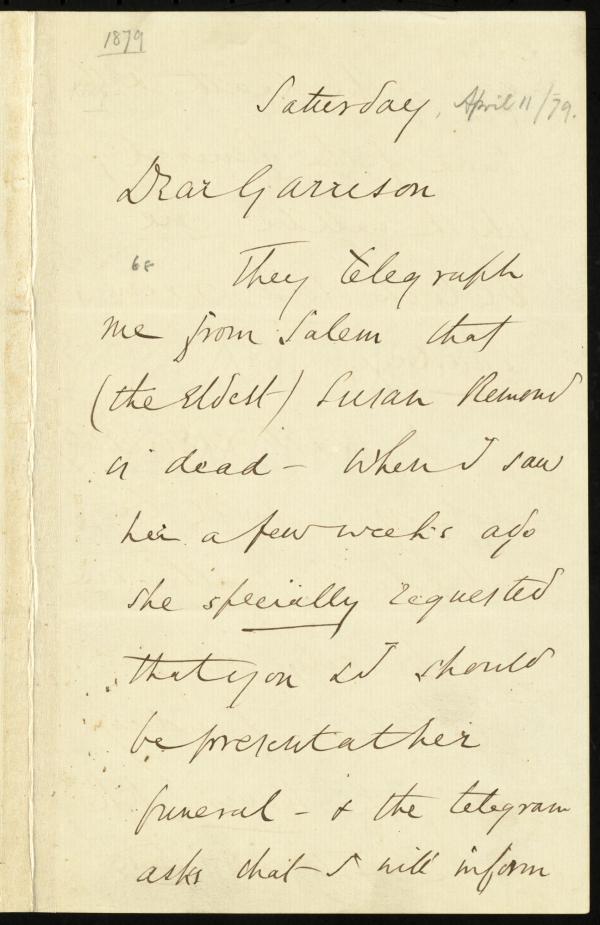 1879
Saturday, April 11/79.
Dear Garrison
68
They telegraph
me from Salem that
(the eldest) Susan Remond
is dead - When I saw
her a few weeks ago
she specially requested
that you & I should
be present at her
funeral - & the telegram
asks that I will inform